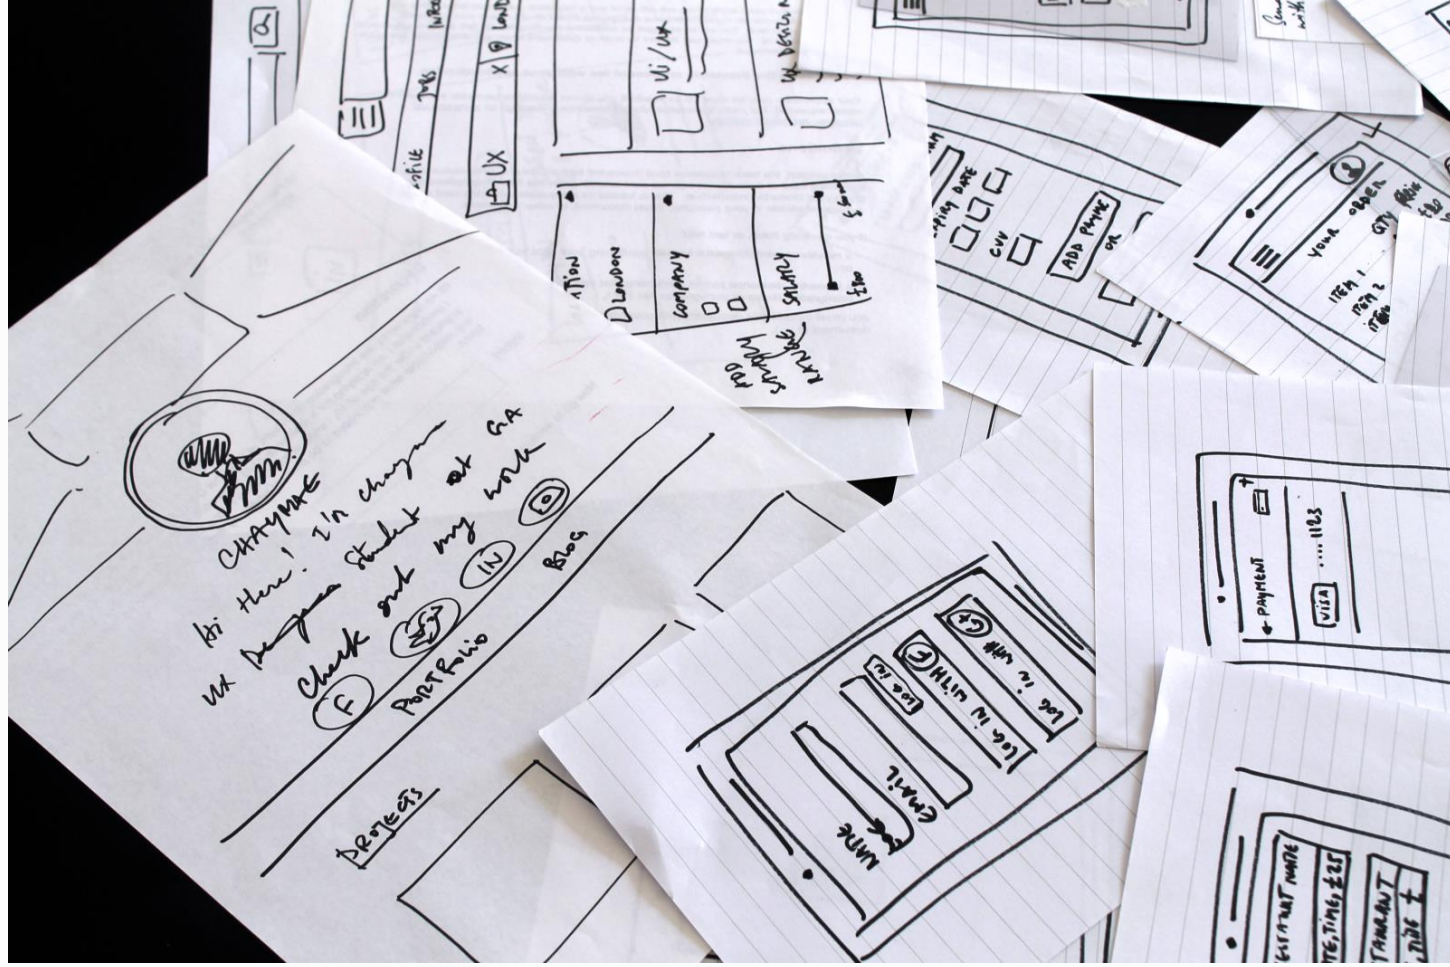 CHAYMAE
Hi there! I'm chaymae
UX Designer Student at GA
Check out my work
F
IN
PORTFOLIO
BLOG
PROJECTS
JOBS
UX
X
LOND
UI / UX
UX DESIGN
LONDON
COMPANY
SALARY
ADD
SALARY
RANGE
DATE
CVV
ADD PAYME
OR
YOUR ORDER
QTY PRICE
ITEM 1
ITEM 2
ITEM
← PAYMENT
+
VISA ....1123
NAME
EMAIL
LOG IN
LOG IN WITH F
LOG IN WITH G+
ESTAURANT NAME
TE, TIME, £25
TAURANT
TIME £